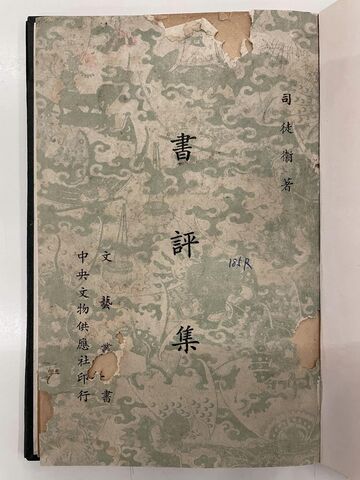 司徒衛著
書評集
185R
文藝叢書
中央文物供應社印行